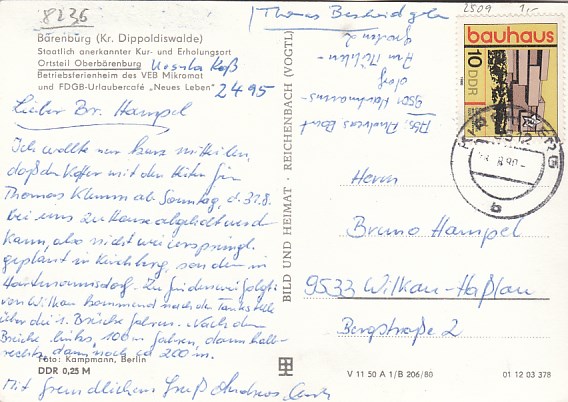 8236
Bärenburg (Kr. Dippoldiswalde)
Staatlich anerkannter Kur- und Erholungsort
Ortsteil Oberbärenburg
Betriebsferienheim des VEB Mikromat
und FDGB-Urlaubercafé „Neues Leben"
Ursula Koß
2495
Lieber Br. Hampel
Ich wollte nur kurz mitteilen,
daß der Koffer mit den für
Thomas Klemm ab Sonntag, d. 31.8.
bei uns zu Hause abgeholt werden
kann, also nicht wie ursprüngl.
geplant in Kirchberg, sondern in
Hartmannsdorf. Zu finden wie folgt:
von Wilkau kommend nach der Tankstelle
über die 1. Brücke fahren. Nach der
Brücke links, 100 m fahren, dann halb-
rechts, dann noch ca 200 m.
Mit freundlichem Gruß Andreas
Foto: Kampmann, Berlin
DDR 0,25 M
BILD UND HEIMAT · REICHENBACH (VOGTL)
Thomas
Abs. Andreas
9501 Hartmanns-
dorf
Am
2509 1,-
bauhaus
10 DDR
b
Herrn
Bruno Hampel
9533 Wilkau-Haßlau
Bergstraße 2
V 11 50 A 1/B 206/80 01 12 03 378